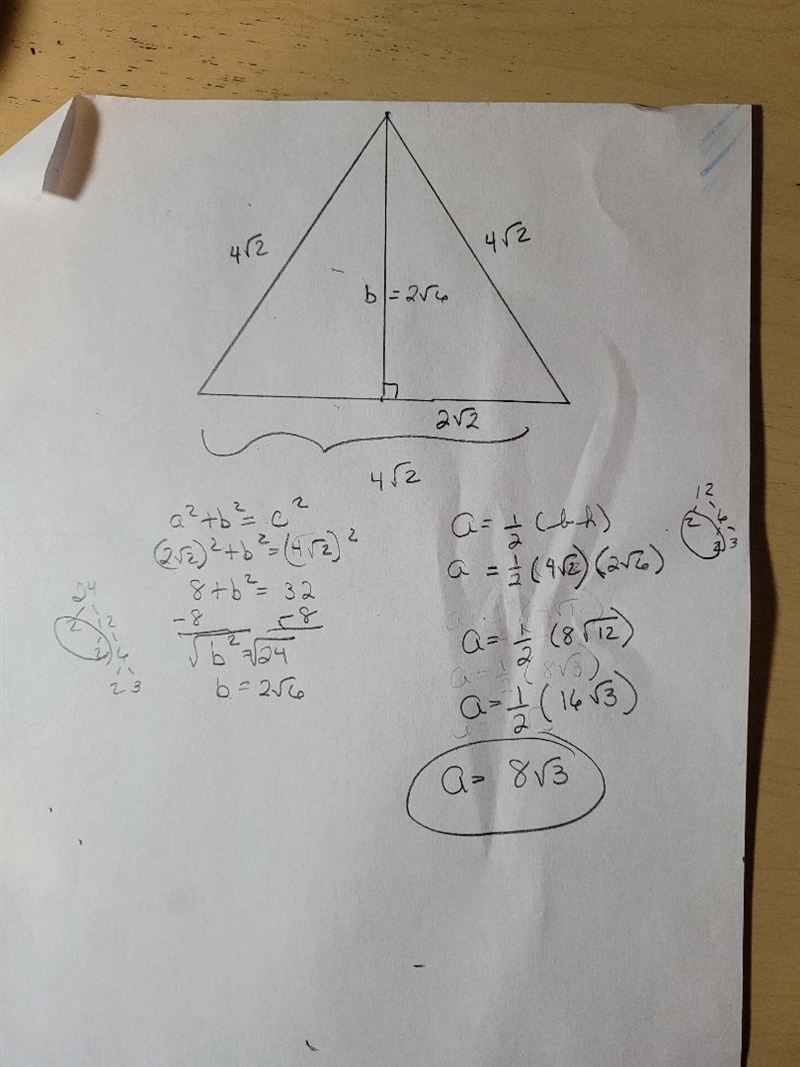 4√2
4√2
b = 2√6
2√2
4√2
a² + b² = c²
(2√2)² + b² = (4√2)²
8 + b² = 32
-8 -8
√b² = √24
b = 2√6
24
2 12
2 6
2 3
a = 1/2 (b·h)
a = 1/2 (4√2)(2√6)
a = 1/2 (8√12)
a = 1/2 (16√3)
a = 8√3
12
2 6
2 3